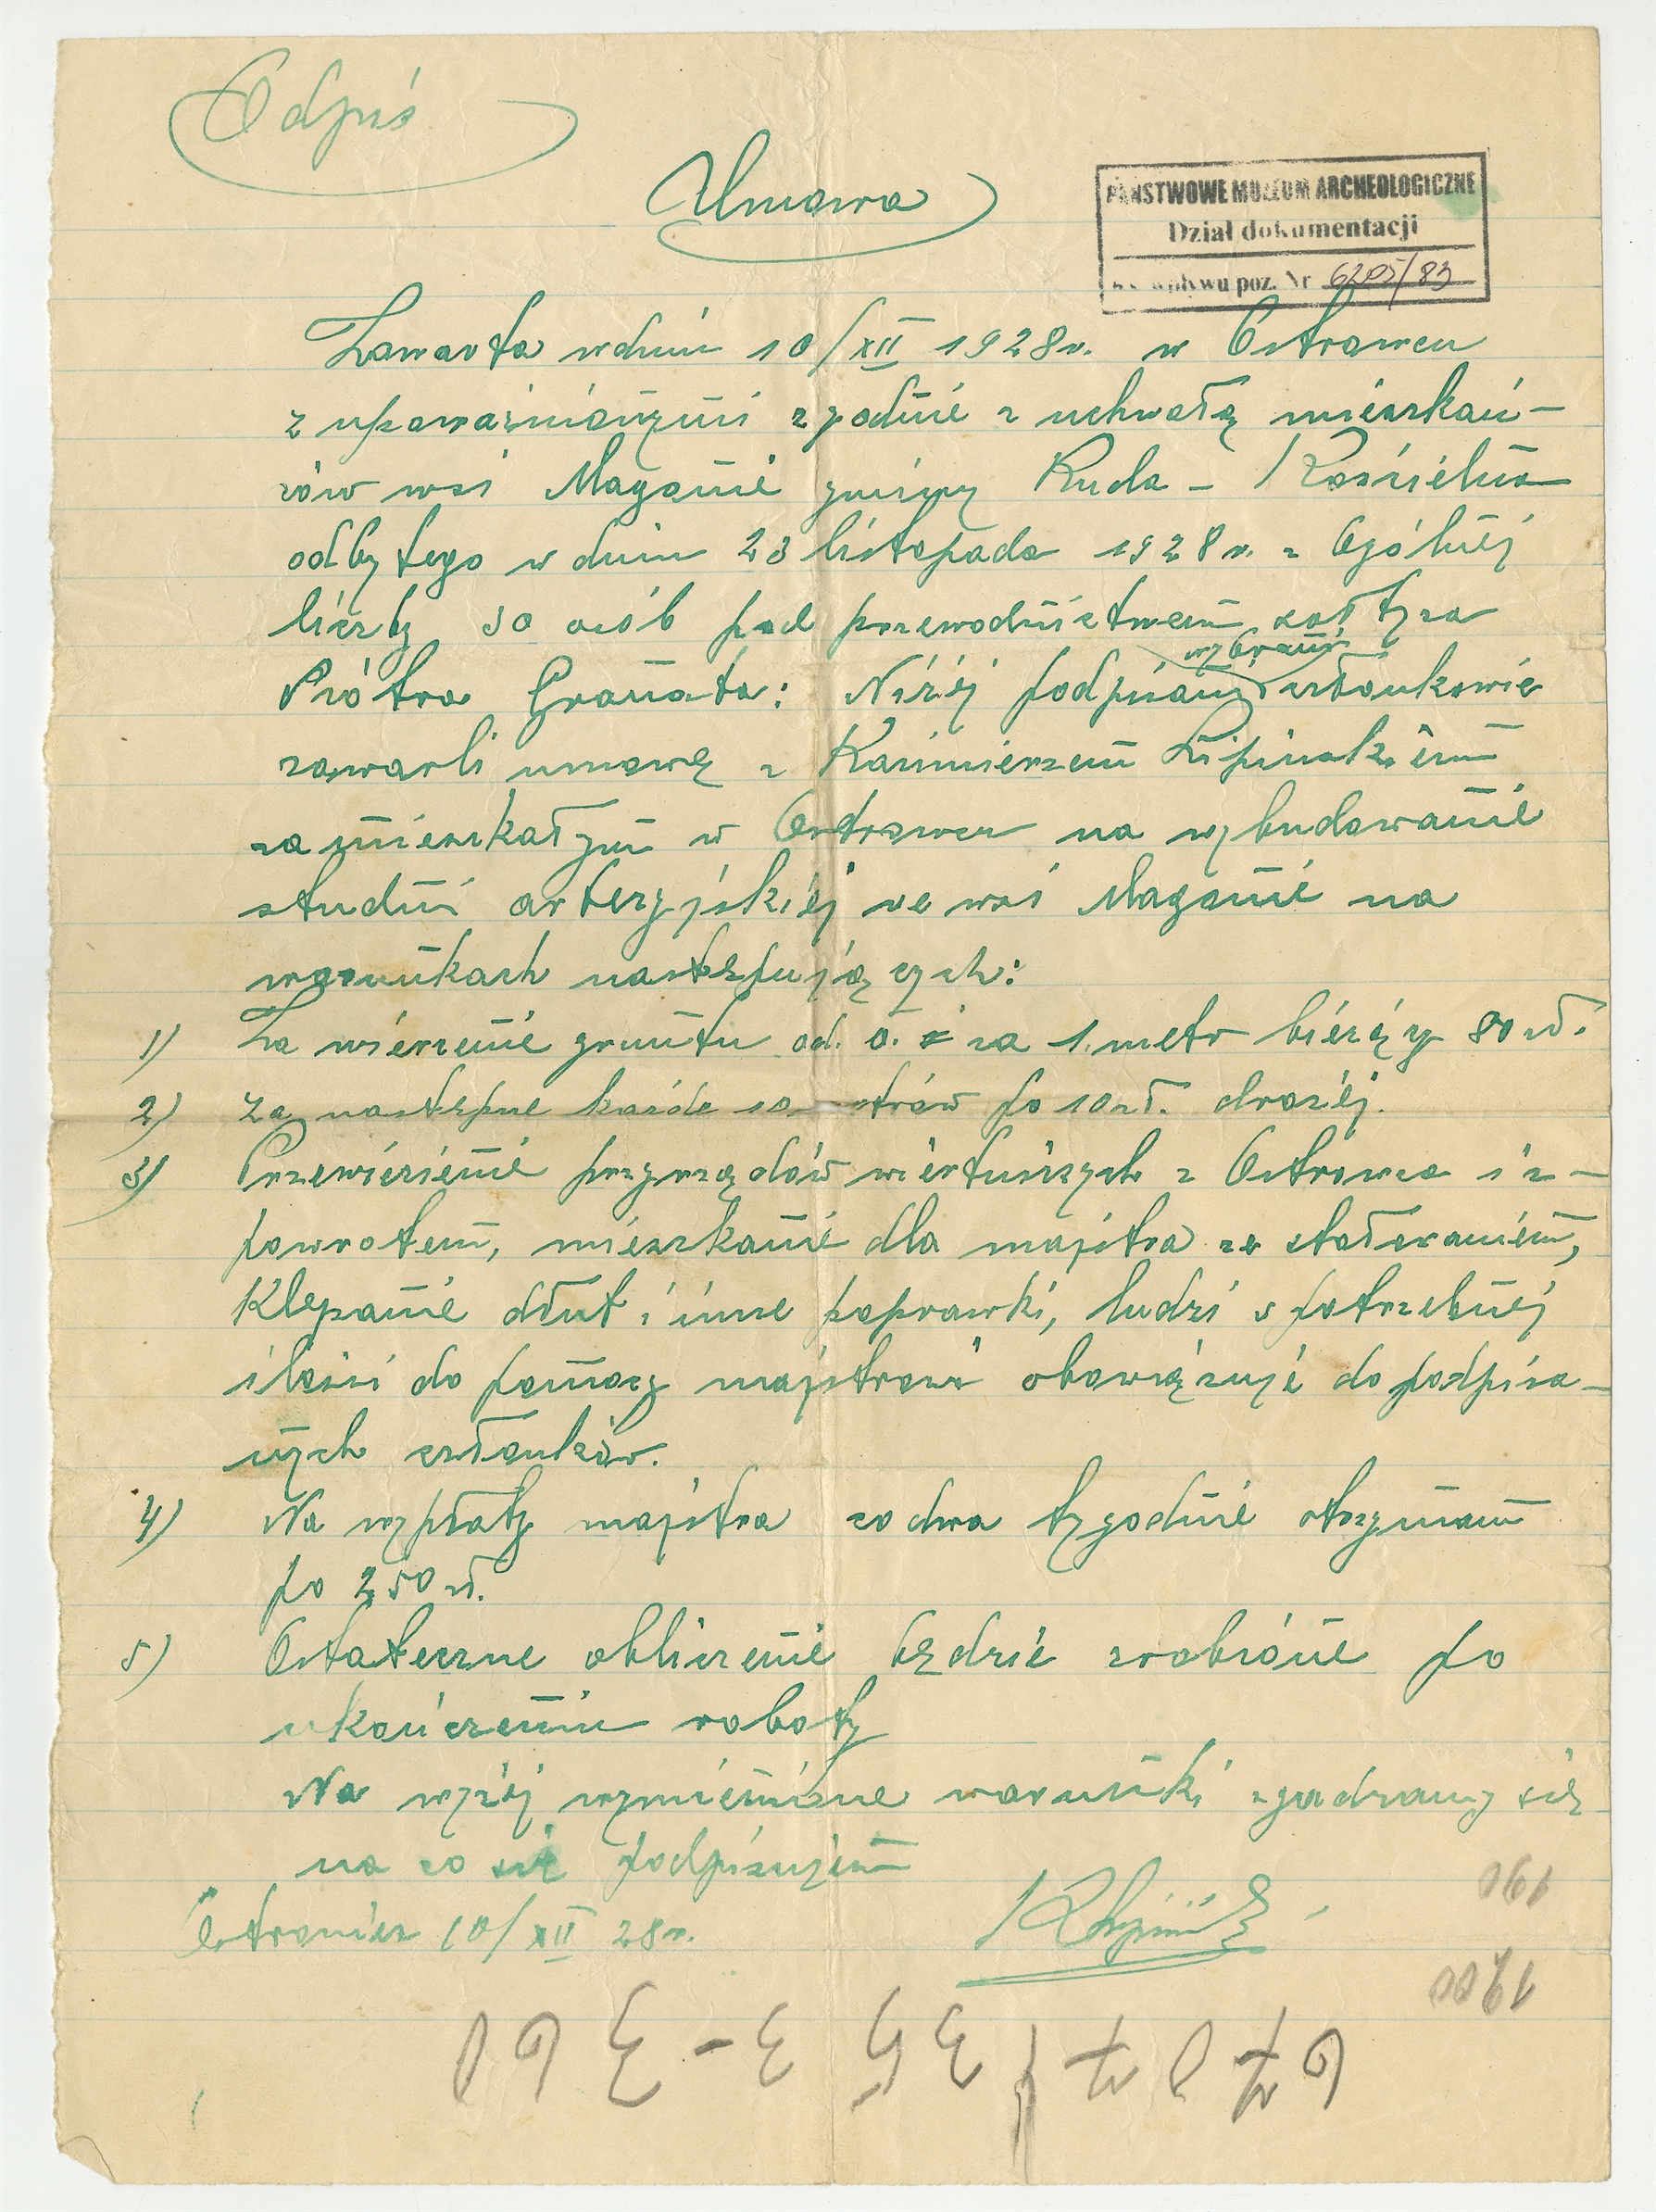 Odpis
Umowa
PAŃSTWOWE MUZEUM ARCHEOLOGICZNE
Dział dokumentacji
wpływu poz. Nr 6205/83
Zawarta w dniu 10/XII 1928 r. w Ostrowcu
z upoważnionymi zgodnie z uchwałą mieszkań-
ców wsi Magonie gminy Ruda-Kościelna
odbytego w dniu 23 listopada 1928 r. z Ogólnej
liczby 30 osób pod przewodnictwem sołtysa
wybrani
Piotra Granata: Niżej podpisany członkowie
zawarli umowę z Kazimierzem Lipińskiem
zamieszkałym w Ostrowcu na wybudowanie
studni artezyjskiej we wsi Magonie na
warunkach następujących:
1) Za wiercenie gruntu od. 0. za 1. metr bieżący 80 zł.
2) Za następne każde 10 trów po 10 zł. drożej.
3) Przewiezienie przyrządów wiertniczych z Ostrowca i z-
powrotem, mieszkanie dla majstra ze stołowaniem,
Klepanie dłut i inne poprawki, ludzi w potrzebnej
ilości do pomocy majstrowi obowiązuje do podpisa-
nych członków.
4) Na wypłatę majstra co dwa tygodnie otrzymam
po 250 zł.
5) Ostateczne obliczenie będzie zrobione po
ukończeniu roboty
Na wyżej wymienione warunki zgadzamy się
na co się podpisujem
Ostrowiec 10/XII 28 r.
KLipiński